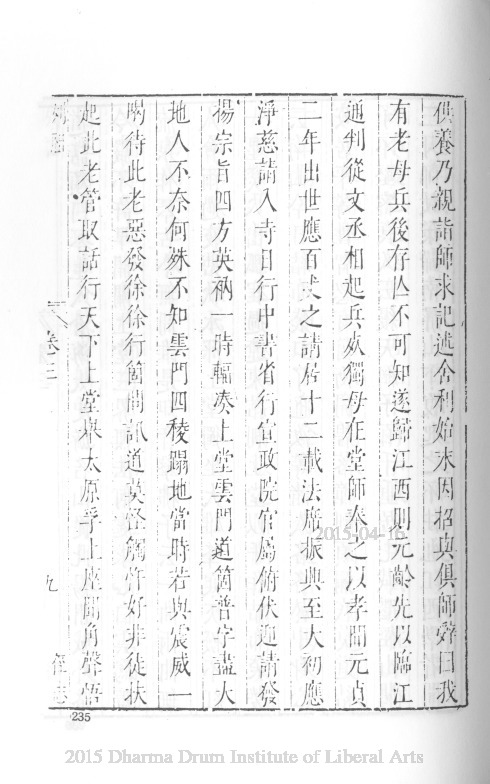 供養乃親詣師求記述舍利始末因招與俱師辭曰我
有老母兵後存亾不可知遂歸江西則元齡先以臨江
通判從文丞相起兵死獨母在堂師奉之以孝聞元貞
二年出世應百丈之請居十二載法席振興至大初應
淨慈請入寺日行中書省行宣政院官屬俯伏迎請發
揚宗旨四方英衲一時輻湊上堂雲門道箇普字盡大
地人不奈何殊不知雲門四稜蹋地當時若與震威一
喝待此老惡發徐徐行箇問訊道莫怪觸忤好非徒扶
起此老管取話行天下上堂舉太原孚上座聞角聲悟
卷三
九
235
2015-04-16
2015 Dharma Drum Institute of Liberal Arts